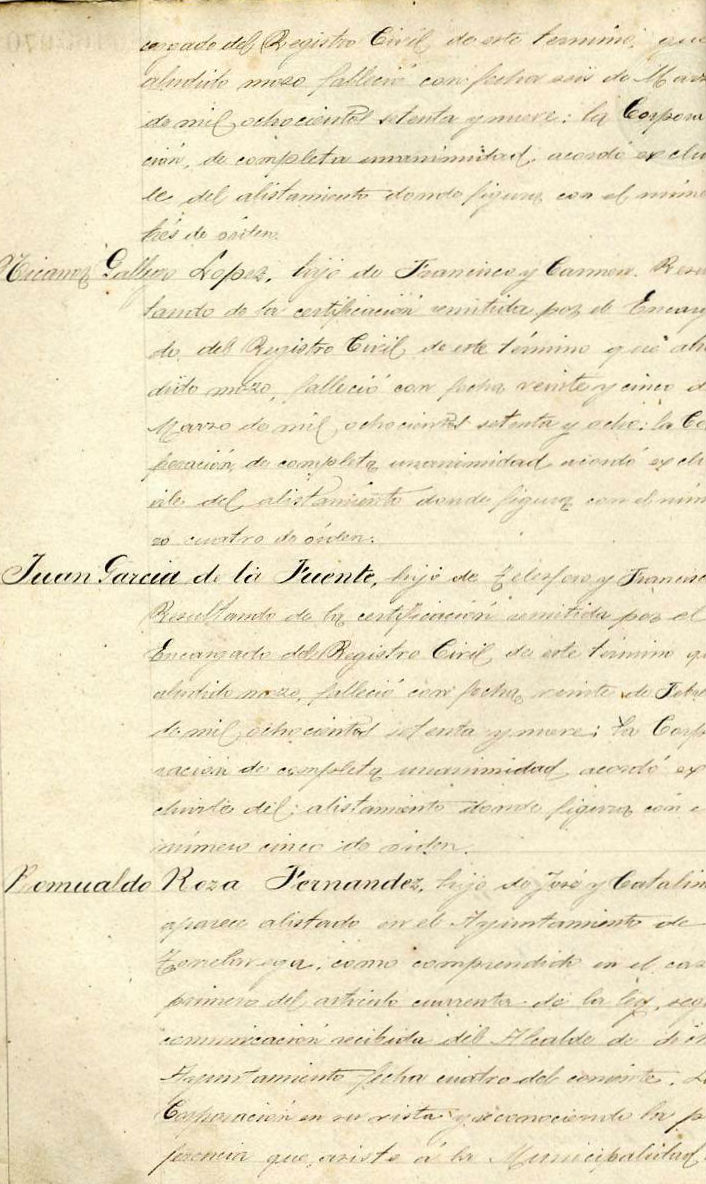 cargado del Registro Civil de este termino, que
aludido mozo falleció con fecha seis de Marz
de mil ochocientos setenta y nueve: la Corpora
ción, de completa unanimidad, acordó exclu
le del alistamiento donde figura con el núme
tres de órden.
Nicanor Gallego Lopez, hijo de Francisco y Carmen. Resu
tando de la certificación remitida por el Encarg
do del Registro Civil de este término que alu
dido mozo, falleció con fecha veinte y cinco d
Marzo de mil ochocientos setenta y ocho: la Co
poración, de completa unanimidad acordó exclu
irle del alistamiento donde figura con el núm
ro cuatro de órden.
Juan Garcia de la Fuente, hijo de Telesforo y Francisc
Resultando de la certificación remitida por el
Encargado del Registro Civil de este término q
aludido mozo, falleció con fecha veinte de Febre
de mil ochocientos setenta y nueve; la Corp
ración de completa unanimidad acordó ex
cluirle del alistamiento donde figura con e
número cinco de órden.
Romualdo Roza Fernandez, hijo de José y Catalin
aparece alistado en el Ayuntamiento de
Torrelavega, como comprendido en el cas
primero del artículo cuarenta de la ley, seg
comunicación recibida del Alcalde de
Ayuntamiento fecha cuatro del corriente. L
Corporación en su vista y reconociendo la p
ferencia que existe á la Municipalidad